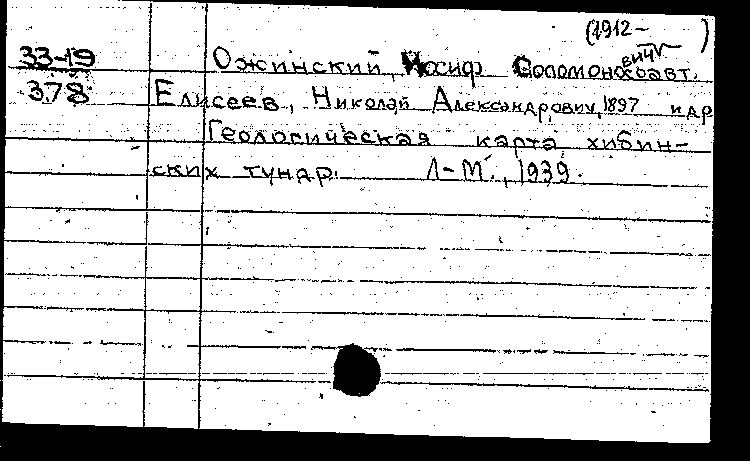 (1912- )
33-19 Ожинский, Иосиф Соломонович соавт.
378 Елисеев, Николай Александрович, 1897 и др
Геологическая карта хибин-
ских тундр. Л-М., 1939.